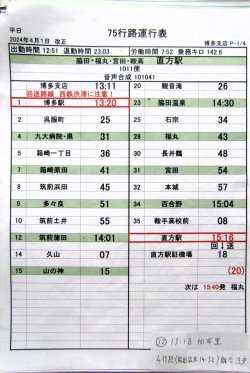 平日
75行路運行表
2024年4月1日 改正
博多支店 P-1/4
出勤時間 12:51 退勤時間 23:03
労働時間 7:52 乗務キロ 142.6
脇田・福丸・宮田・鞍高 直方駅
1011便
音声合成 101041
博多支店 13:11
回送路線 西鉄渋滞に注意!
1 博多駅 13:20
呉服町 25
4 千代町 31
九大病院・県
5 箱崎一丁目 36
6 箱崎原田 41
筑前浜田 45
9 多々良 51
10 筑前土井 55
12 筑前蒲田 14:01
14 久山 07
15 山の神 15
20 観音滝 26
23 脇田温泉 14:30
石原 34
28 福丸 43
30 長井鶴 48
31 宮田 54
32 本城 57
34 百合野 15:04
35 鞍手高校前 08
直方駅 15:16
回↓送
直方駅駐車場 18
(20)
次は 15:40発 福丸
13:18